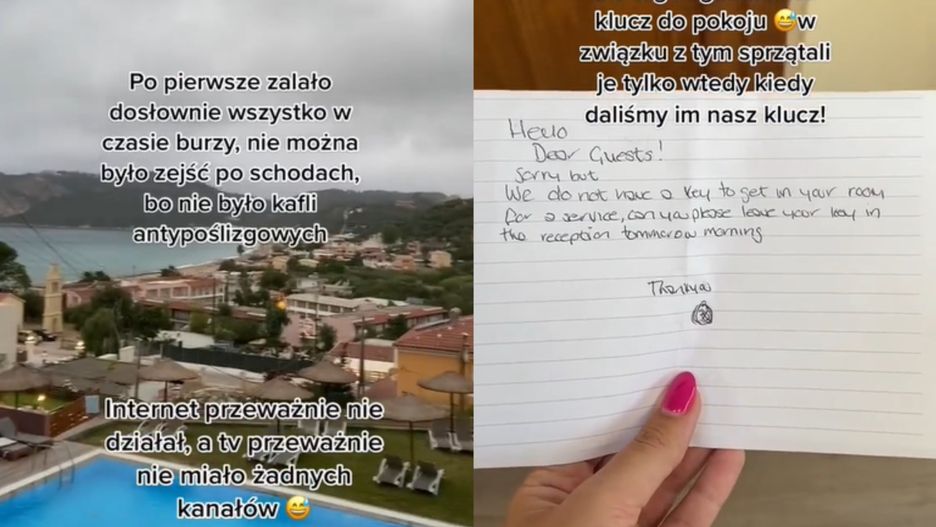 Po pierwsze zalało
dosłownie wszystko w
czasie burzy, nie można
było zejść po schodach,
bo nie było kafli
antypoślizgowych
Internet przeważnie nie
działał, a tv przeważnie
nie miało żadnych
kanałów 😅
klucz do pokoju 😅w
związku z tym sprzątali
je tylko wtedy kiedy
daliśmy im nasz klucz!
Hello
Dear Guests!
Sorry but
We do not have a key to get in your room
for a service, can you please leave your key in
the reception tommorow morning